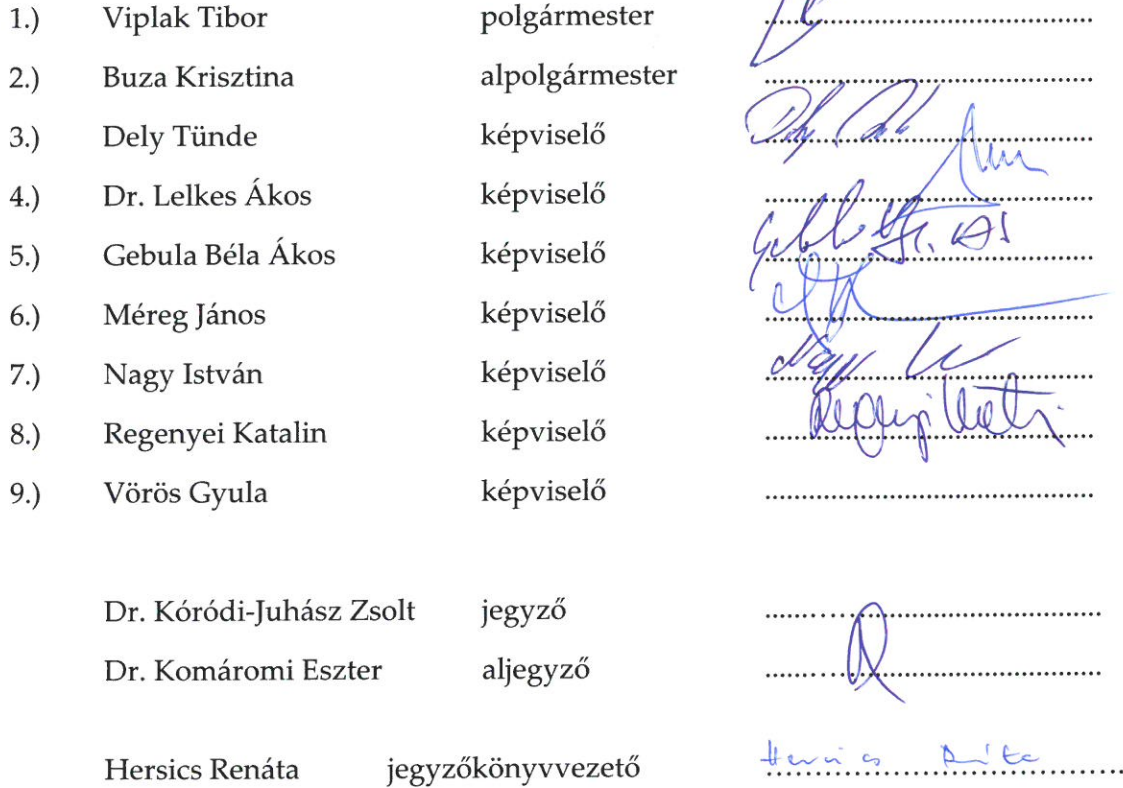 1.) Viplak Tibor polgármester
2.) Buza Krisztina alpolgármester
3.) Dely Tünde képviselő
4.) Dr. Lelkes Ákos képviselő
5.) Gebula Béla Ákos képviselő
6.) Méreg János képviselő
7.) Nagy István képviselő
8.) Regenyei Katalin képviselő
9.) Vörös Gyula képviselő
Dr. Kóródi-Juhász Zsolt jegyző
Dr. Komáromi Eszter aljegyző
Hersics Renáta jegyzőkönyvvezető